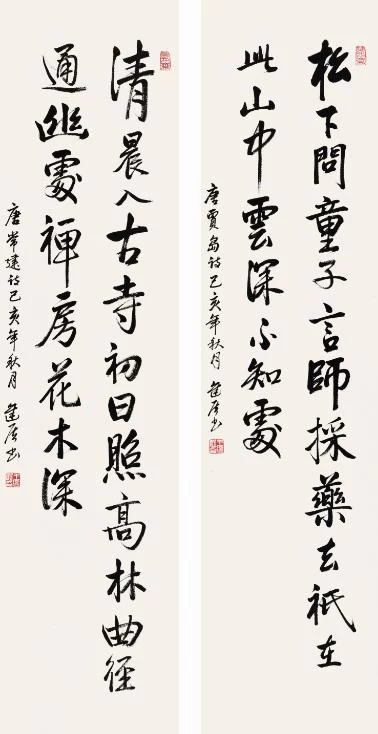 松下問童子言師採藥去祇在
此山中雲深不知處
唐賈島诗己亥年秋月 書
清晨入古寺初日照高林曲徑
通幽處禪房花木深
唐常建诗己亥年秋月 書